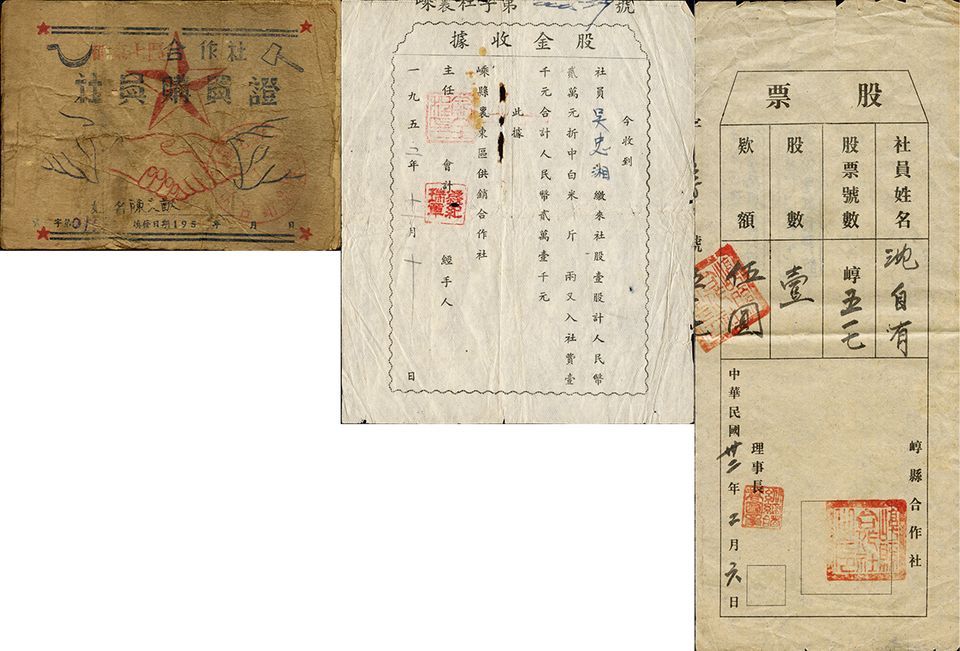 合作社
社員購買證
姓名陳
字第
填發日期195 年 月 日
嵊農社字第 號
股金收據
今收到
社員吳忠湘繳來社股壹股計人民幣
貳萬元折中白米 斤 兩又入社費壹
千元合計人民幣貳萬壹千元
此據
嵊縣農東區供銷合作社
主任 會計 經手人
一九五二年十一月十一日
股票
社員姓名
沈自有
股票號數
嵊五
股數
壹
款額
伍圓
嵊縣合作社
理事長
中華民國廿二年二月六日